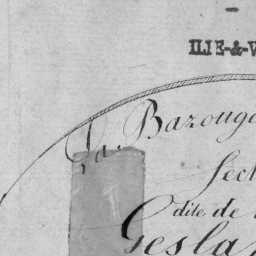 ILLE-&-V
La Bazouge
Sect
dite de
Gesla